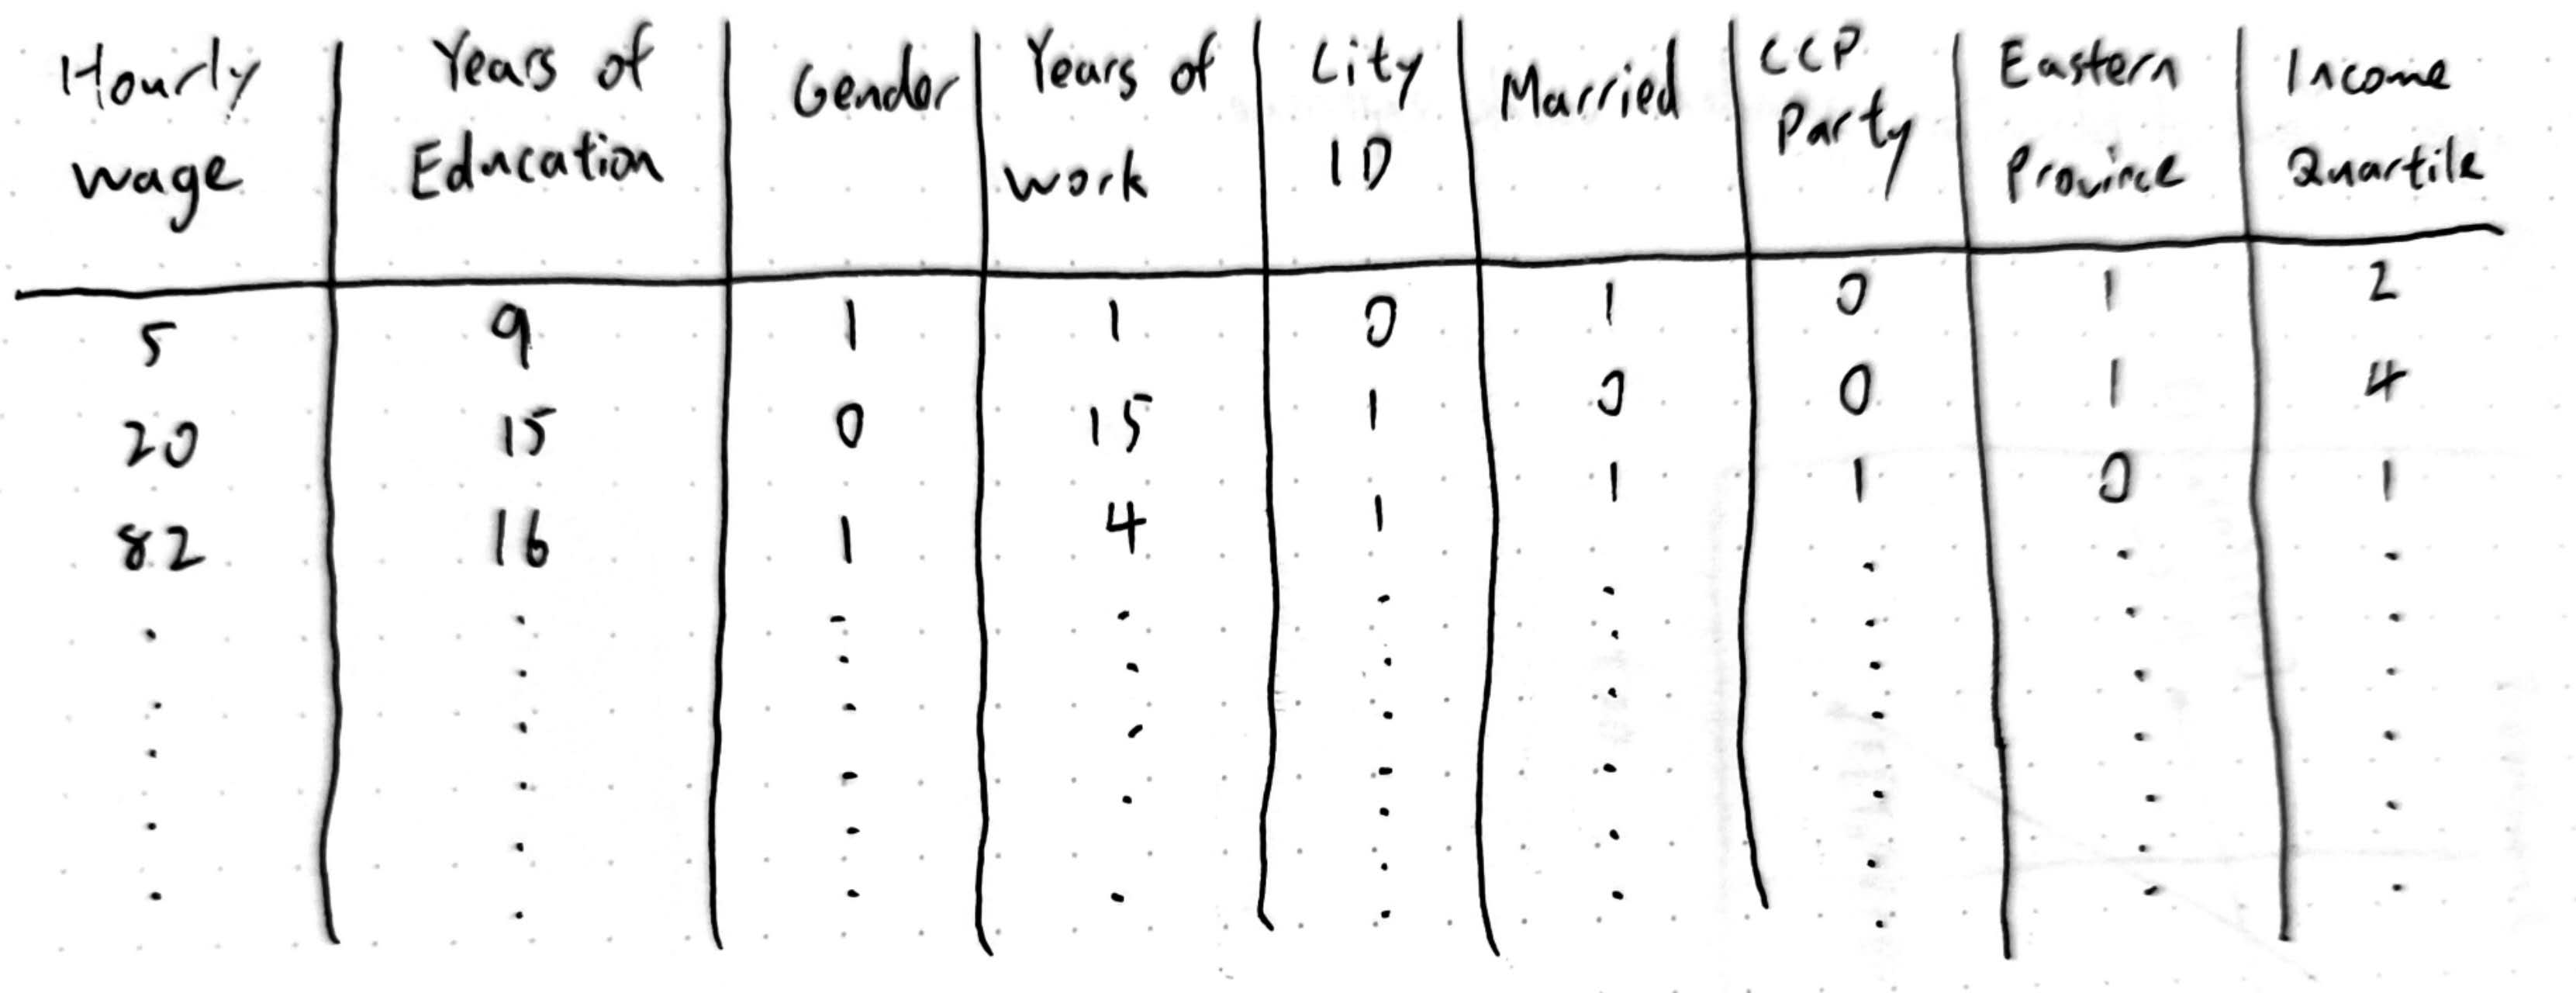 Hourly wage | Years of Education | Gender | Years of work | City ID | Married | CCP Party | Eastern Province | Income Quartile
5 | 9 | 1 | 1 | 0 | 1 | 0 | 1 | 2
20 | 15 | 0 | 15 | 1 | 0 | 0 | 1 | 4
82 | 16 | 1 | 4 | 1 | 1 | 1 | 0 | 1